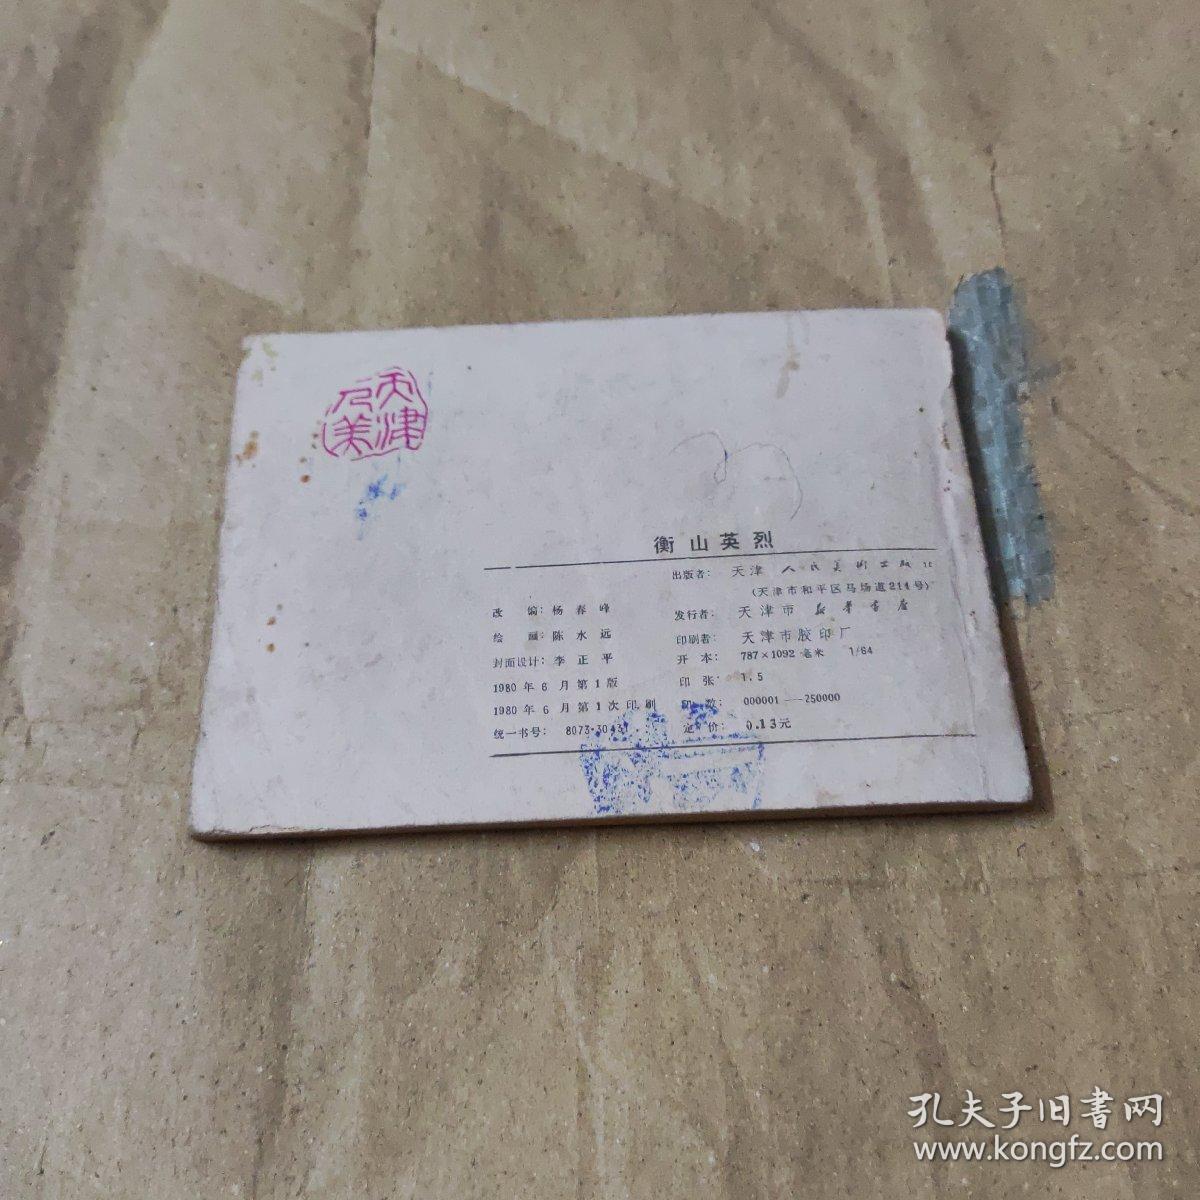 天津
人美
衡山英烈
出版者: 天津人民美術出版社
(天津市和平区马场道214号)
改编: 杨春峰
发行者: 天津市新華書店
绘画: 陈水远
印刷者: 天津市胶印厂
封面设计: 李正平
开本: 787×1092毫米 1/64
1980年6月第1版
印张: 1.5
1980年6月第1次印刷
印数: 000001—250000
统一书号: 8073·30431
定价: 0.13元
孔夫子旧書网
www.kongfz.com